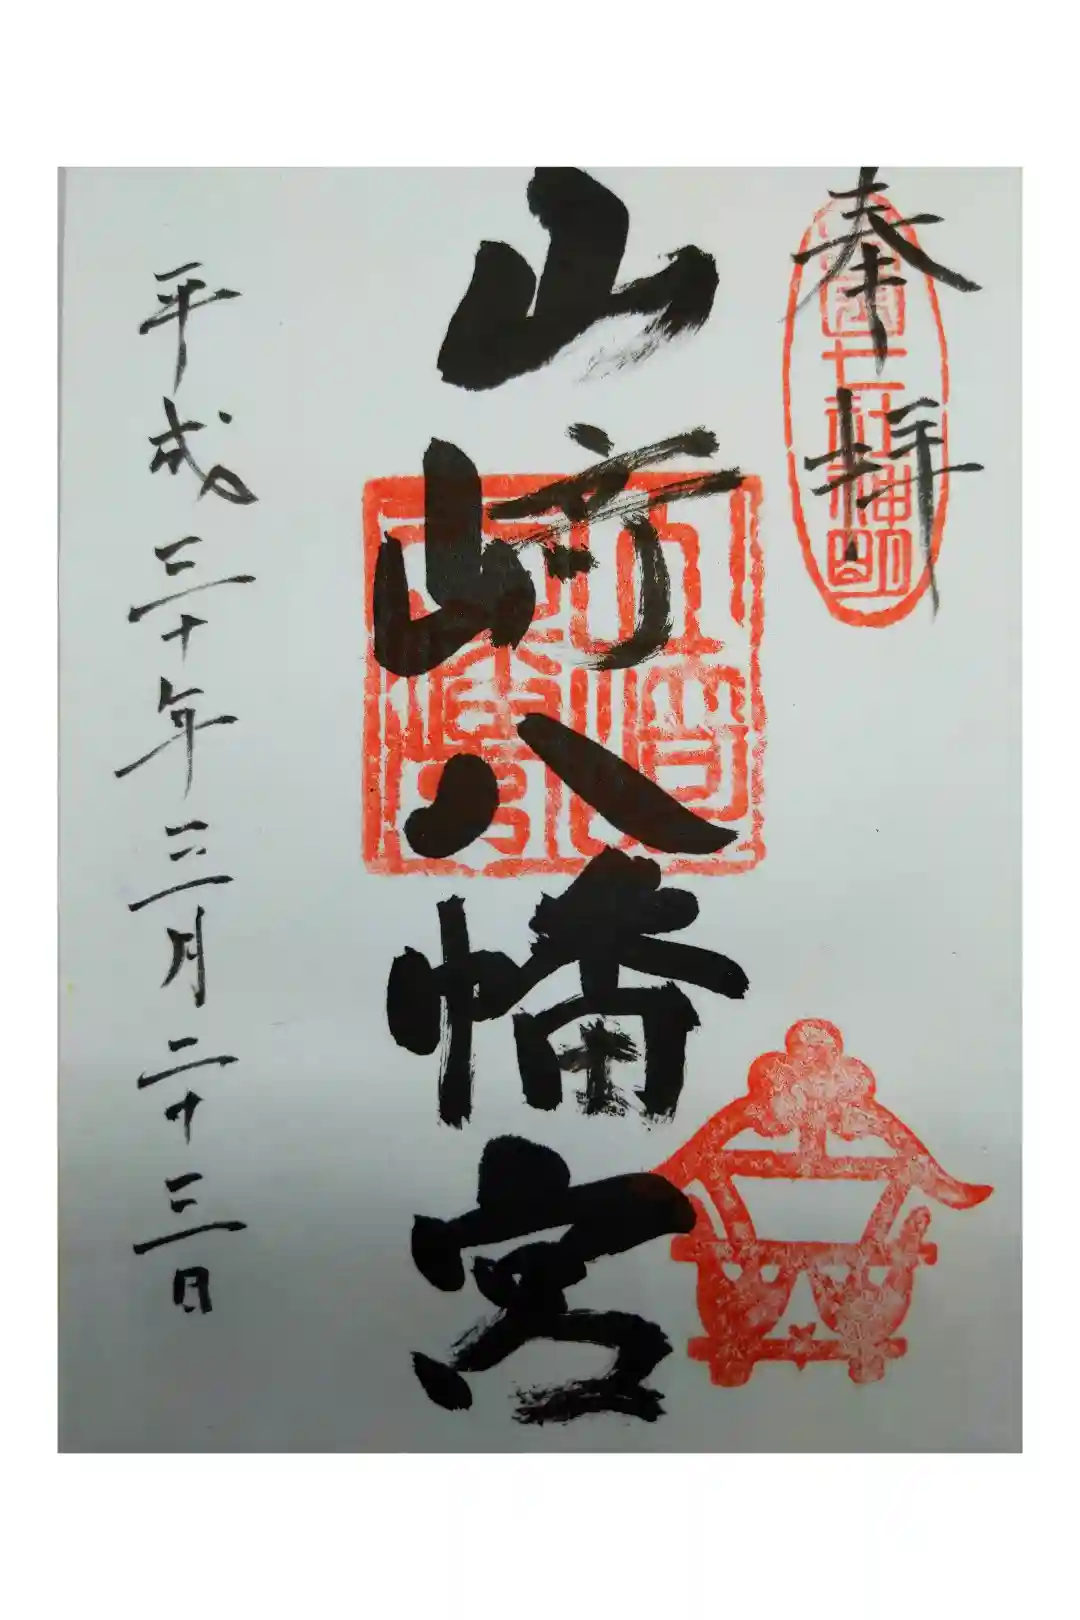 奉拝
山﨑八幡宮
平成三十年三月二十三日